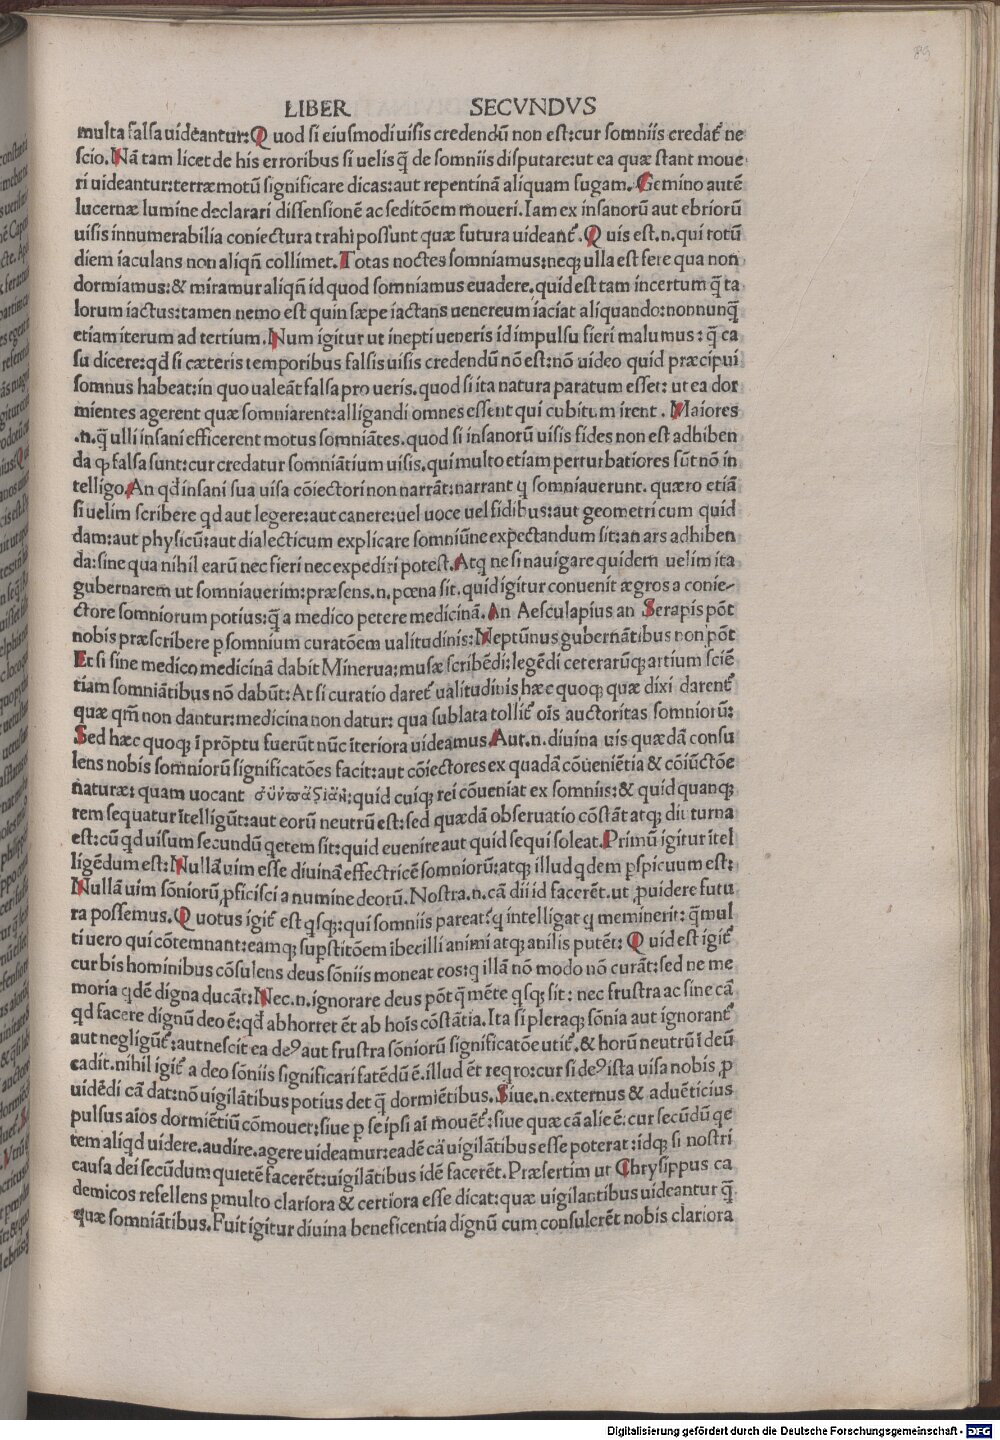 89
LIBER SECVNDVS
multa falsa uideantur: Quod si eiusmodi uisis credendū non est: cur somniis credat᷒ ne
scio. Nā tam licet de his erroribus si uelis q̄ de somniis disputare: ut ea quæ stant moue
ri uideantur: terræ motū significare dicas: aut repentinā aliquam fugam. Gemino autē
lucernæ lumine declarari dissensionē ac seditōem moueri. Iam ex insanorū aut ebriorū
uisis innumerabilia coniectura trahi possunt quæ futura uideant᷒. Quis est .n. qui totū
diem iaculans non aliqñ collimet. Totas noctes somniamus: neq; ulla est fere qua non
dormiamus: & miramur aliqñ id quod somniamus euadere. quid est tam incertum q̄ ta
lorum iactus: tamen nemo est quin sæpe iactans uenereum iaciat aliquando: nonnunq̄
etiam iterum ad tertium. Num igitur ut inepti ueneris id impulsu fieri malumus: q̄ ca
su dicere: qd si cæteris temporibus falsis uisis credendū nō est: nō uideo quid præcipui
somnus habeat: in quo ualeāt falsa pro ueris. quod si ita natura paratum esset: ut ea dor
mientes agerent quæ somniarent: alligandi omnes essent qui cubitum irent. Maiores
.n. q̄ ulli insani efficerent motus somniātes. quod si insanorū uisis fides non est adhiben
da q; falsa sunt: cur credatur somniātium uisis. qui multo etiam perturbatiores sūt nō in
telligo. An qd insani sua uisa cōiectori non narrāt: narrant q somniauerunt. quæro etiā
si uelim scribere qd aut legere: aut canere: uel uoce uel fidibus: aut geometricum quid
dam: aut physicū: aut dialecticum explicare somniūne expectandum sit: an ars adhiben
da: sine qua nihil earū nec fieri nec expediri potest. Atq ne si nauigare quidem uelim ita
gubernarem ut somniauerim: præsens .n. pœna sit. quid igitur conuenit ægros a conie-
ctore somniorum potius: q̄ a medico petere medicinā. An Aesculapius an Serapis pōt
nobis præscribere p somnium curatōem ualitudinis: Neptūnus gubernātibus non pōt
Et si sine medico medicinā dabit Minerua: musæ scribēdi: legēdi ceterarūq; artium sciē
tiam somniātibus nō dabūt: At si curatio daret᷒ ualitudinis hæc quoq; quæ dixi darent᷒
quæ qm̄ non dantur: medicina non datur: qua sublata tollit᷒ oīs auctoritas somniorū:
Sed hæc quoq; ī prōptu fuerūt nūc īteriora uideamus. Aut .n. diuina uis quædā consu
lens nobis somniorū significatōes facit: aut cōiectores ex quadā cōueniētia & cōiūctōe
naturæ: quam uocant : quid cuiq; rei cōueniat ex somniis: & quid quanq;
rem sequatur ītelligūt: aut eorū neutrū est: sed quædā obseruatio cōstāt atq; diuturna
est: cū qd uisum secundū qetem sit: quid euenire aut quid sequi soleat. Primū igitur ītel
ligēdum est: Nullā uim esse diuinā effectricē somniorū: atq; illud qdem pspicuum est:
Nullā uim sōniorū pficisci a numine deorū. Nostra .n. cā dii id facerēt. ut puidere futu
ra possemus. Quotus igit᷒ est qsq;: qui somniis pareat? q intelligat q meminerit: q̄ mul
ti uero qui cōtemnant: eamq; supstitōem ibecilli animi atq; anilis putēt: Quid est igit᷒
cur bis hominibus cōsulens deus sōniis moneat eos: q illā nō modo nō curāt: sed ne me
moria qdē digna ducāt: Nec .n. ignorare deus pōt q̄ mēte qsq; sit: nec frustra ac sine cā
qd facere dignū deo ē: qd abhorret ēt ab hoīs cōstātia. Ita si pleraq; sōnia aut ignorant᷒
aut negligūt᷒: aut nescit ea deꝰ aut frustra sōniorū significatōe utit᷒. & horū neutrū ī deū
cadit. nihil igit᷒ a deo sōniis significari fatēdū ē. illud ēt reqro: cur si deꝰ ista uisa nobis p
uidēdi cā dat: nō uigilātibus potius det q̄ dormiētibus. Siue .n. externus & aduēticius
pulsus aīos dormiētiū cōmouet: siue p se ipsi aī mouēt᷒: siue quæ cā alie ē: cur secūdū qe
tem aliqd uidere. audire. agere uideamur: eadē cā uigilātibus esse poterat: idq; si nostri
causa dei secūdum quietē facerēt: uigilātibus idē facerēt. Præsertim ut Chrysippus ca
demicos refellens pmulto clariora & certiora esse dicat: quæ uigilantibus uideantur q̄
quæ somniātibus. Fuit igitur diuina beneficentia dignū cum consulerēt nobis clariora
Digitalisierung gefördert durch die Deutsche Forschungsgemeinschaft - DFG